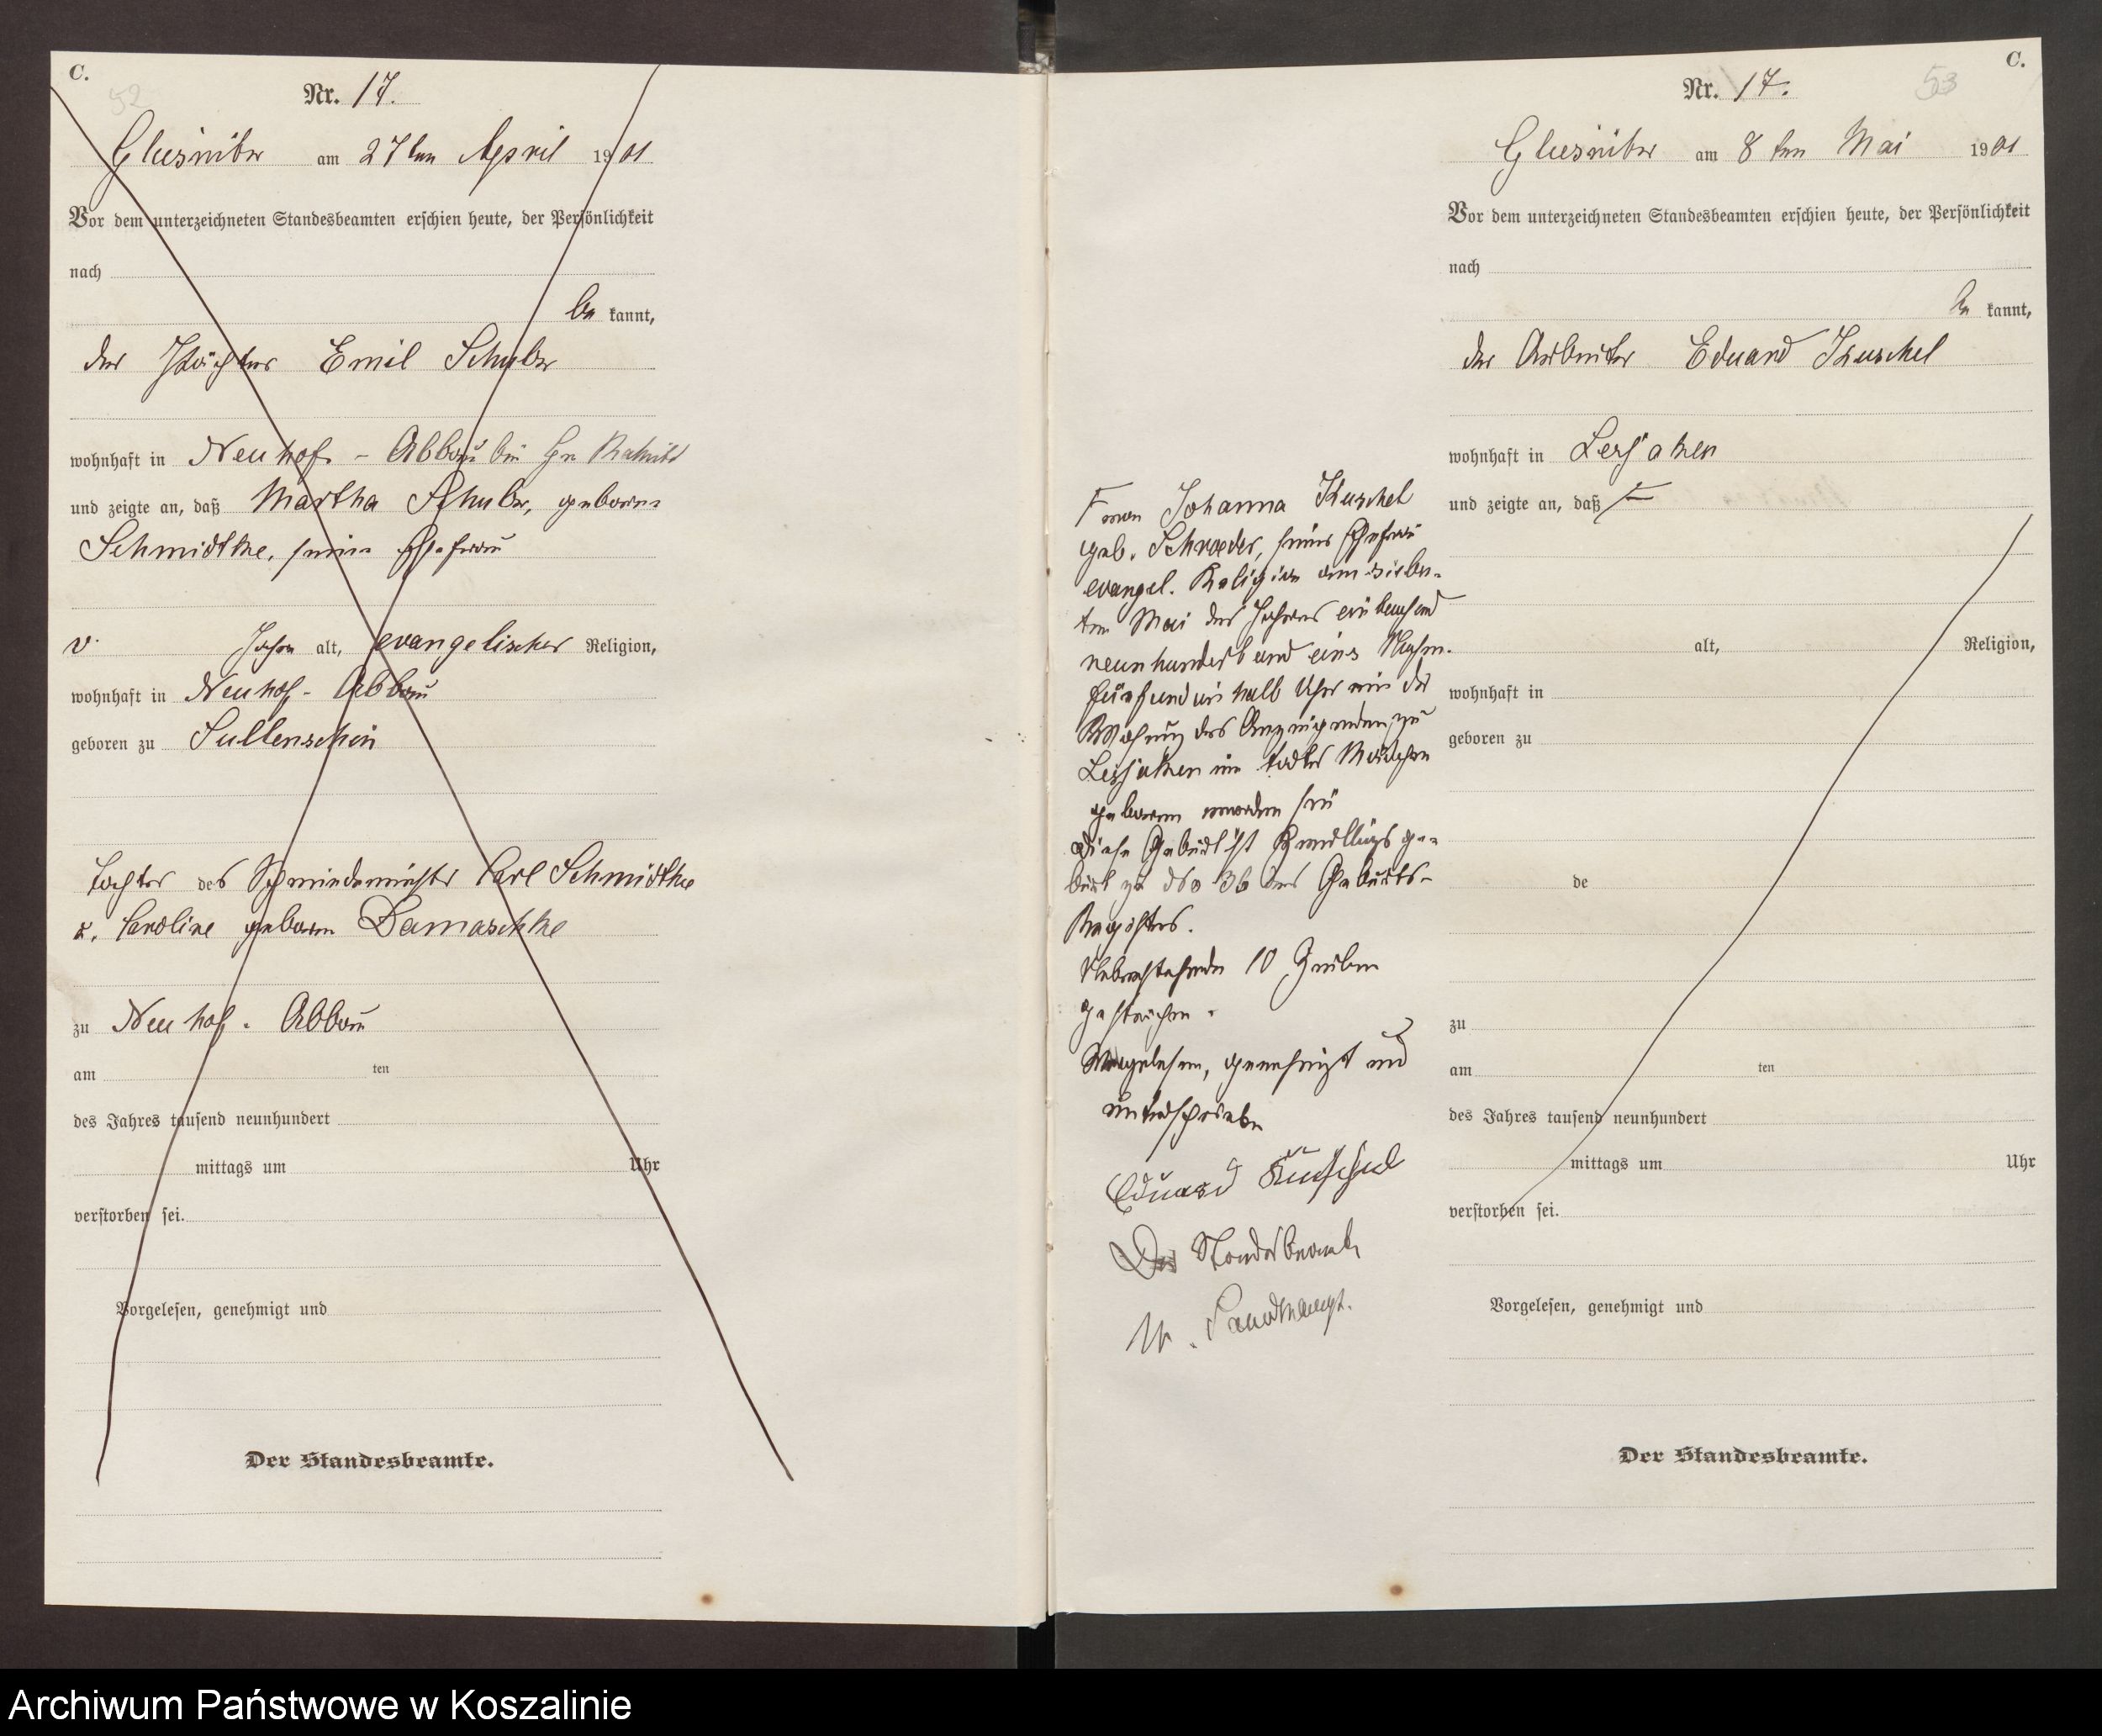 C.
52
Nr. 17.
Glusnitz am 27ten April 1901
Vor dem unterzeichneten Standesbeamten erschien heute, der Persönlichkeit
nach
be kannt,
der Pächter Emil Schulz
wohnhaft in Neuhof - Abbau bei Gr Rakitt
und zeigte an, daß Martha Schulz, geborne
Schmidtke, seine Ehefrau
Jahre alt, evangelischer Religion,
wohnhaft in Neuhof - Abbau
geboren zu Sullenschin
Tochter des Schmiedemeister Carl Schmidtke
u. Caroline geboren Damaschke
zu Neuhof - Abbau
am ten
des Jahres tausend neunhundert
mittags um Uhr
verstorben sei.
Vorgelesen, genehmigt und
Der Standesbeamte.
C.
53
Nr. 17.
am 8ten Mai 1901
Vor dem unterzeichneten Standesbeamten erschien heute, der Persönlichkeit
nach
be kannt,
der Arbeiter Eduard Kuschel
wohnhaft in Lessaken
und zeigte an, daß
alt, Religion,
wohnhaft in
geboren zu
de
zu
am ten
des Jahres tausend neunhundert
mittags um Uhr
verstorben sei.
Vorgelesen, genehmigt und
Der Standesbeamte.
von Johanna Kuschel
geb. Schroeder, seiner Ehefrau
evangel. Religion am sieben-
ten Mai des Jahres eintausend
neunhundert und eins Nachm.
fünfundein halb Uhr in der
Wohnung des Anzeigenden zu
Lessaken ein todtes Mädchen
geboren worden sei
Diese Geburt ist Zwillings ge-
burt zu No 36 des Geburts-
Registers.
Nebenstehende 10 Zeilen
gestrichen.
Vorgelesen, genehmigt und
unterschrieben
Eduard Kuschel
Der Standesbeamte
Archiwum Państwowe w Koszalinie